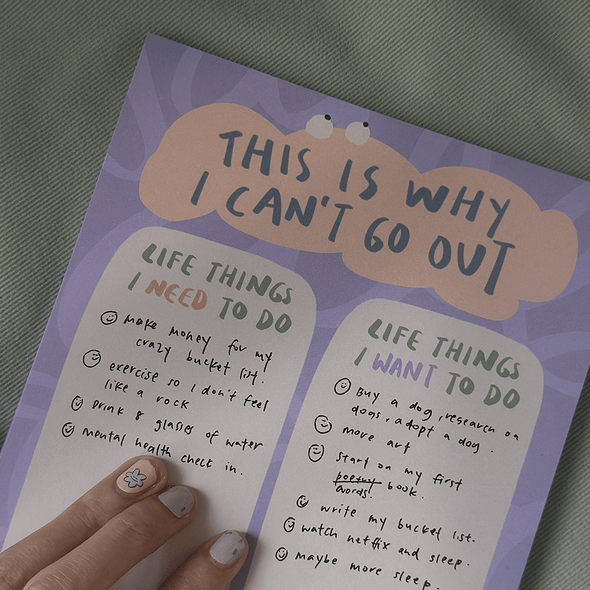 THIS IS WHY
I CAN'T GO OUT
LIFE THINGS
I NEED TO DO
make money for my
crazy bucket list.
exercise so I don't feel
like a rock
Drink 8 glasses of water
mental health check in.
LIFE THINGS
I WANT TO DO
Buy a dog, research on
dogs, adopt a dog.
more art
start on my first
poetry book.
words
write my bucket list.
watch netflix and sleep.
maybe more sleep.